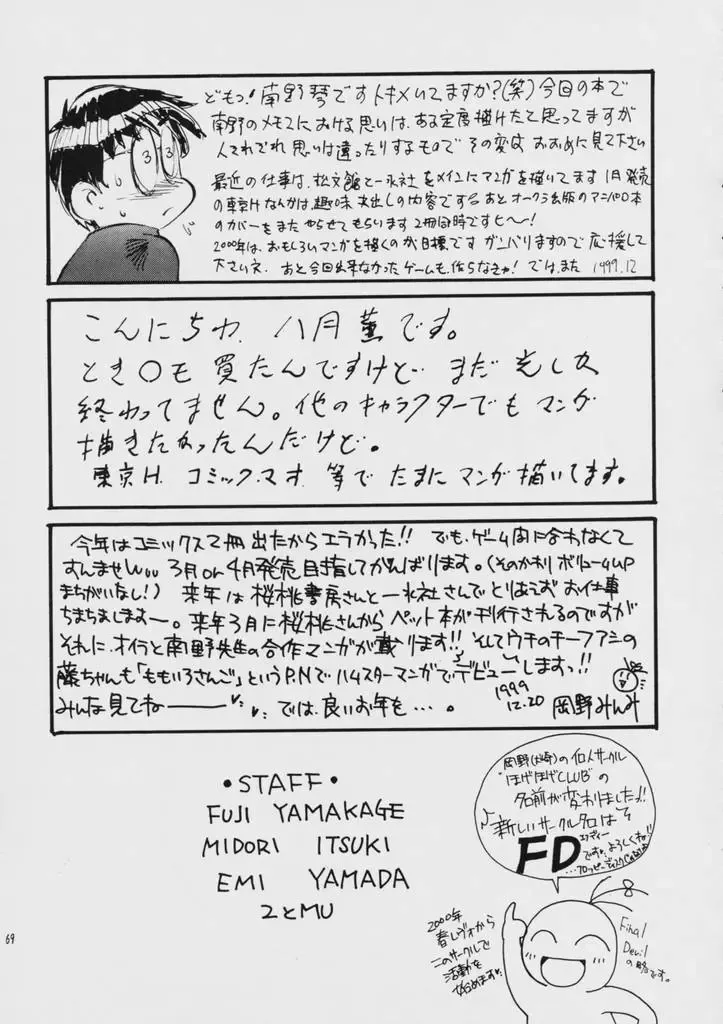 どもっ!南野琴ですトキメいてますか?(笑)今回の本で
南野のメモ2における思いは、ある程度描けたと思ってますが
人それぞれ思いは違ったりするもので その変は おおめに見て下さい
最近の仕事は、松文館と一水社をメインにマンガを描いてます 1月発売
の東京Hなんかは、趣味丸出しの内容ですあとオークラ出版のアニパロ本
のカバーをまた やらせてもらいます 2冊同時ですヒ〜!
2000年は、おもしろいマンガを描くのが目標です ガンバりますので応援して
下さいネ. あと今回出来なかったゲームも、作らなきゃ! では、また 1999.12
こんにちわ 八月薫です。
とき〇も 買たんですけど まだ 光しか
終わってません。他のキャラクターでも マンガ
描きたかったんだけど。
東京H. コミック・マオ 等で たまに マンガ描いてます。
今年はコミックス2冊出たからエラかった!! でも、ゲーム間に合わなくて
すんませんぃぃ 3月or4月発売目指してがんばります。(そのかわりボリュームup
まちがいなし!) 来年は桜桃書房さんと一水社さんでとりあえずお仕事
ちまちまします〜。来年3月に桜桃さんから ペット本が刊行されるのですが
それに、オイラと南野先生の合作マンガが載ります!! そしてウチのチーフアシの
藤ちゃんも「ももいろさんご」というP.Nでハムスターマンガでデビューしますっ!!
みんな見てねー では、良いお年を…。
1999
12.20
岡野みんみ
•STAFF•
FUJI YAMAKAGE
MIDORI ITSUKI
EMI YAMADA
2とMU
岡野()の個人サークル
"ほげほげCLUB"の
名前が変わりましたっ!!
♪新しいサークル名は
エフディー
FD
ですっ、よろしくね!!
…フロッピーディスク
2000年
春レヴォから
このサークルで
活動を
始めます
Final
Devil
の略です。
69